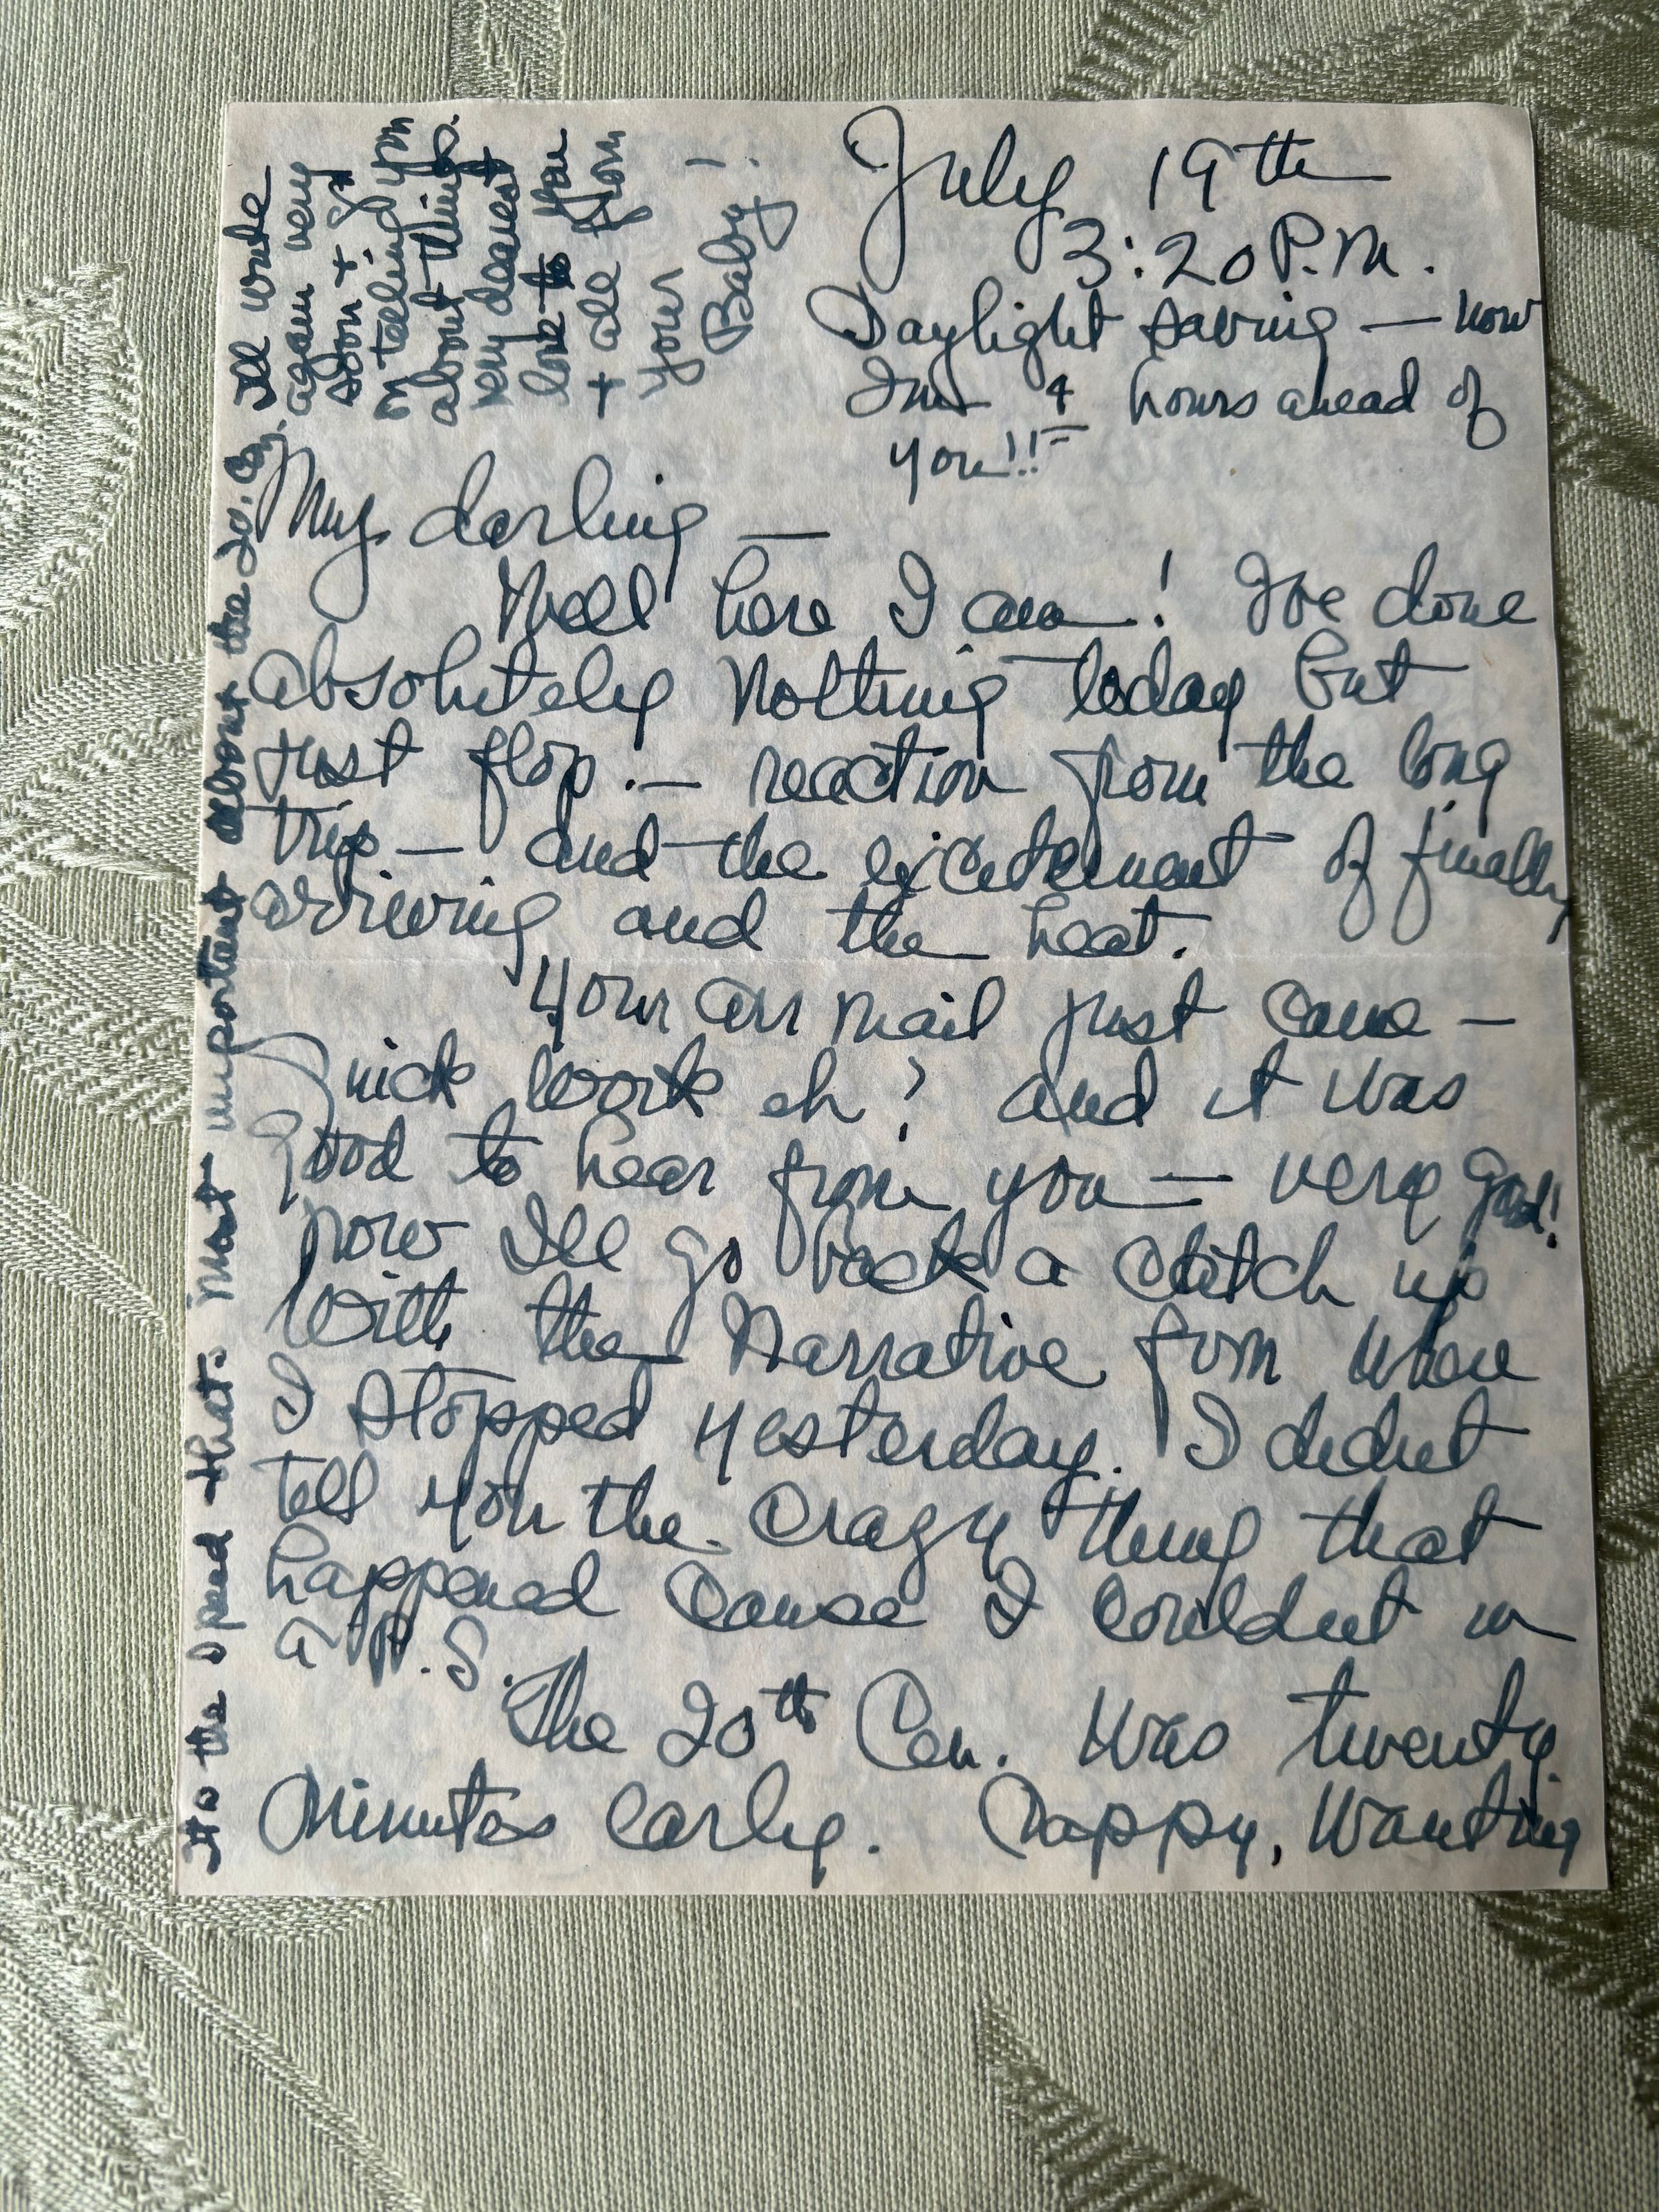 July 19th
3:20 P.M.
Daylight saving — now
I'm 4 hours ahead of
you!!
My darling —
Well here I am! I've done
absolutely nothing today but
just flop. — reaction from the long
trip — and the excitement of finally
arriving and the heat.
Your air mail just came —
Quick work eh? and it was
good to hear from you — very good!
Now I'll go back a catch up
with the narrative from where
I stopped yesterday. I didn't
tell you the crazy thing that
happened cause I couldn't in
a P.S.
The 20th Cen. was twenty
minutes early. Pappy, wanting
It's the speed that's most important about the 20. Cen.
I'll write
again very
soon +
on telling you
about things.
Very dearest
love to you
+ all from
your
Baby!